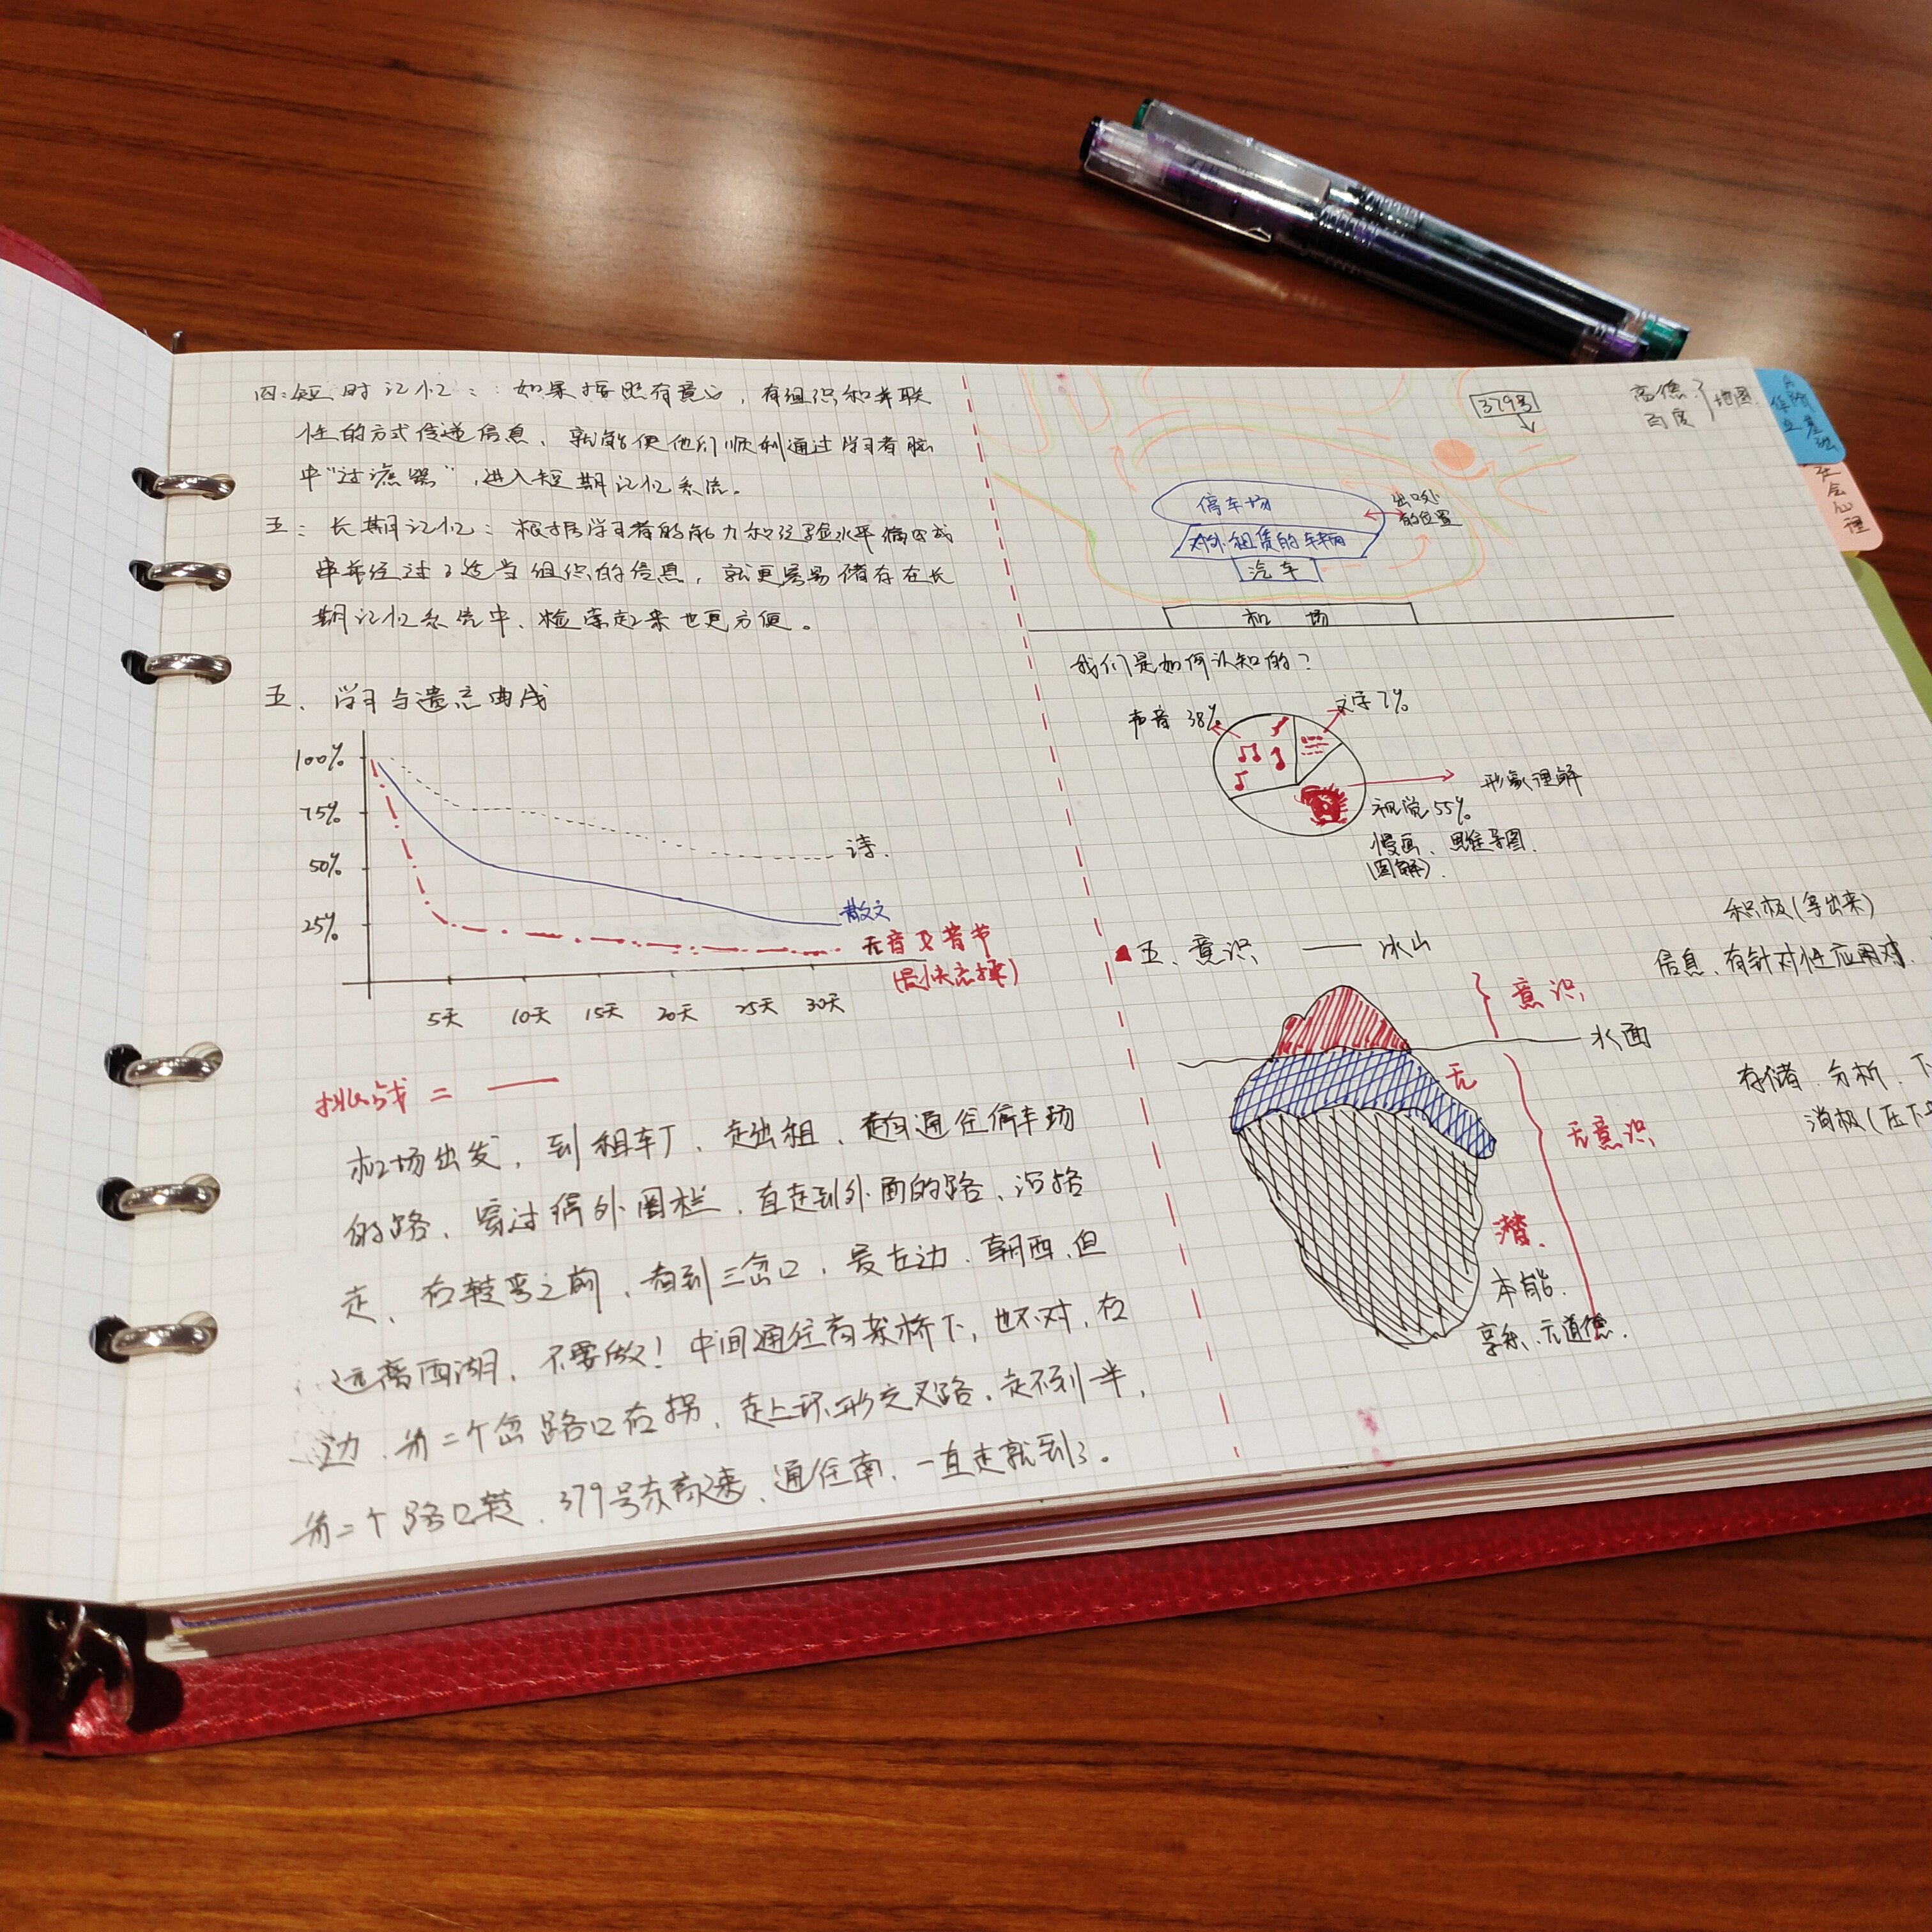 四:短时记忆:如果按照有意义,有组织和关联
性的方式传递信息、就能使他们顺利通过学习者脑
中"过滤器",进入短期记忆系统。
五:长期记忆:根据学习者的能力和经验水平
并经过了适当组织的信息,就更容易储存在长
期记忆系统中、检索起来也更方便。
五、学习与遗忘曲线
100%
75%
50%
25%
诗.
散文
无音及音节
5天 10天 15天 20天 25天 30天
挑战=
机场出发,到租车厂、走出租、走向通往停车场
的路、穿过停外围栏、直走到外面的路、沿路
走、右转弯之前、看到三岔口,最左边、朝西、但
远离西湖、不要做!中间通往高架桥下,也不对,右
边、第二个岔路口右拐、走上环形交叉路、走不到一半,
第二个路口转、379号东高速、通往南、一直走就到了。
379号
高德
百度
地图
停车场
出口处
的位置
对外租赁的车辆
汽车
机场
我们是如何认知的?
声音 38%
文字 7%
形象理解
视觉 55%
漫画、思维导图.
(图解).
五、意识 —— 冰山
积极(拿出来)
信息、有针对性应用对
意识
水面
无
无意识
存储、分析、下
消极(压下
潜.
本能.
享乐、无道德.
社会心理